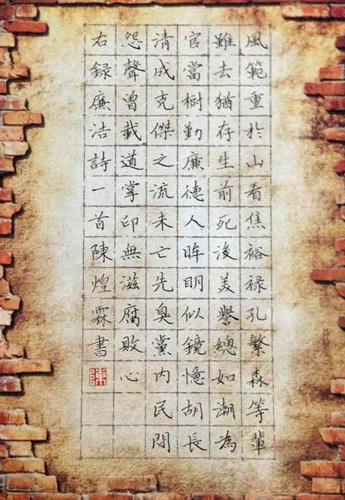 風範重於山看焦裕禄孔繁森等輩
雖去猶存生前死後美譽總如潮為
官當樹勤廉德人眸明似鏡憶胡長
清成克傑之流未亡先臭黨内民間
怨聲曾載道掌印無滋腐敗心
右録廉洁詩一首陳煌霖書